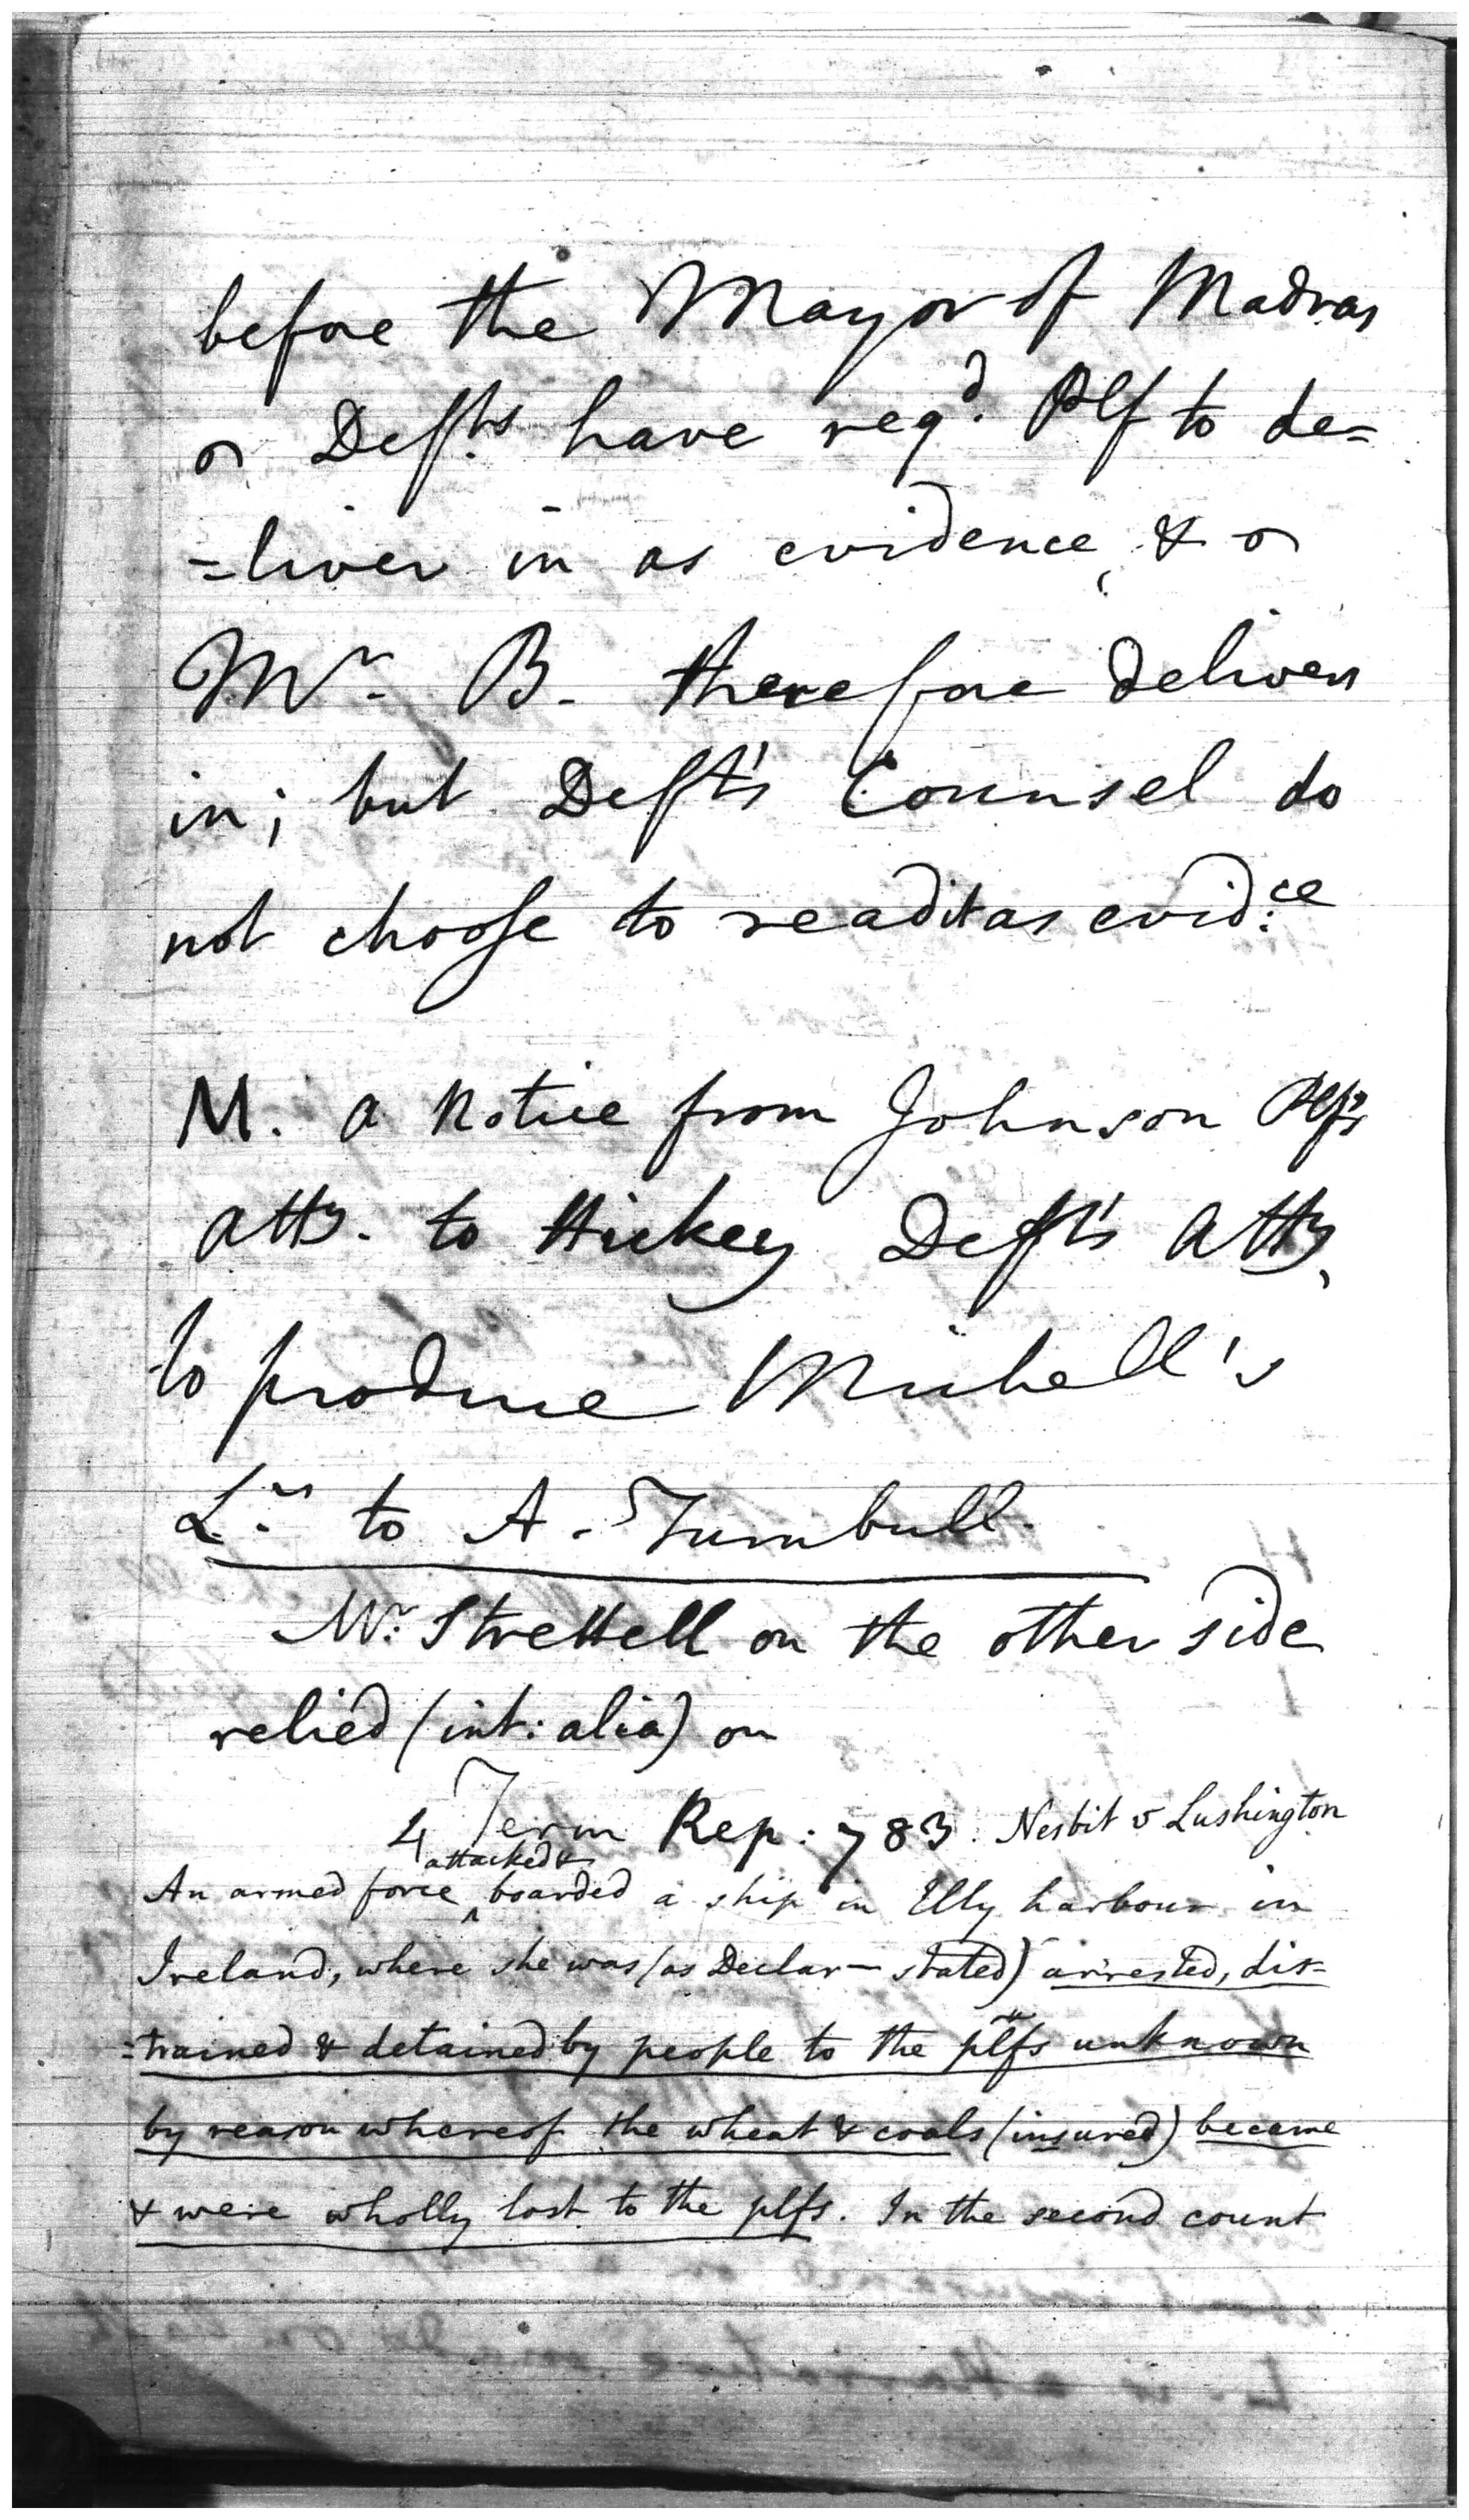 before the Mayor of Madras
Defts. have reqd. Plf to de=
=liver in as evidence, &
Mr. B. therefore delivers
in; but Deft's Counsel do
not choose to read it as evid:ce
M. a Notice from Johnson Plf's
atty. to Hickey Deft's Atty,
to produce Michell's
Lrs to A. Turnbull.
Mr. Strettell on the other side
relied (int: alia) on
4 Term Rep: 783. Nesbit v Lushington
An armed force attacked & boarded a ship in Elly harbour in
Ireland, where she was (as Declarn stated) arrested, dis-
=trained & detained by people to the plfs unknown
by reason whereof the wheat & coals (insured) became
& were wholly lost to the plfs. In the second count